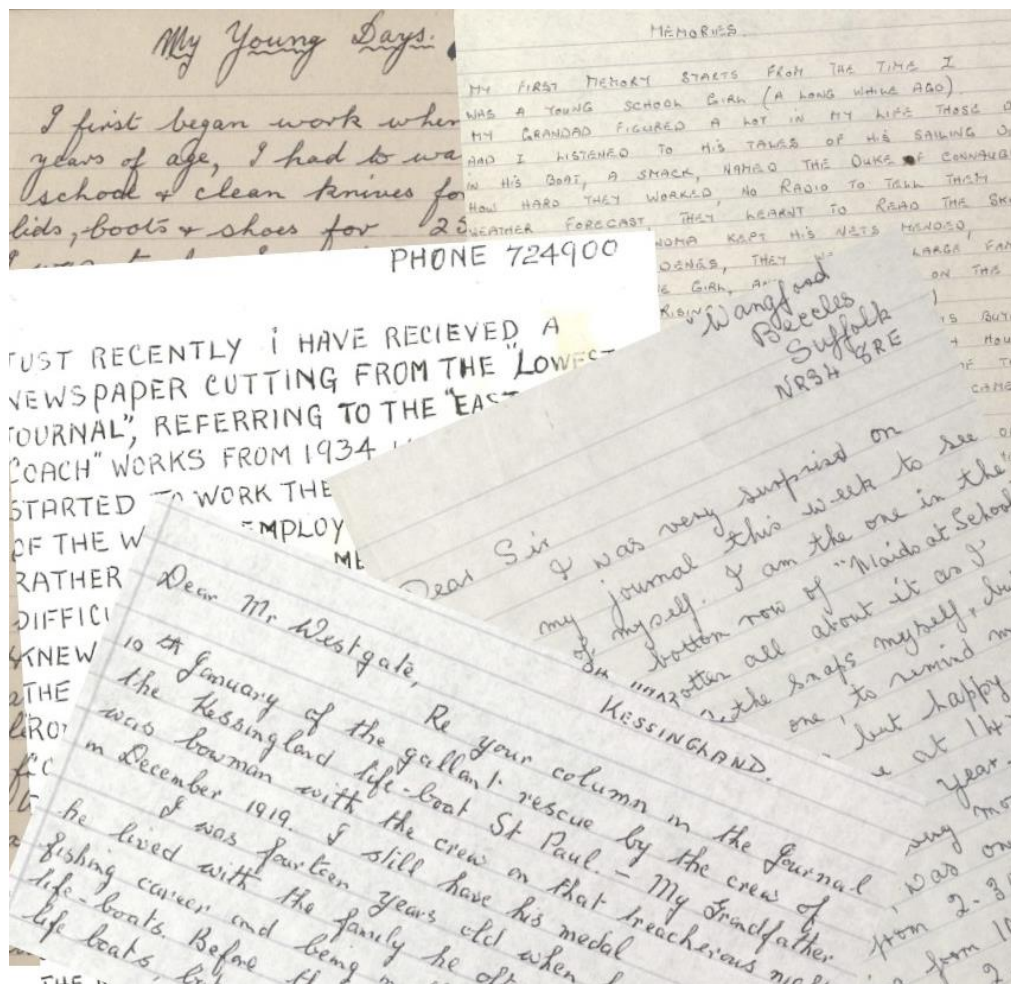 My Young Days.
I first began work when
years of age, I had to wa
school & clean knives for
lids, boots & shoes for 2s
MEMORIES.
MY FIRST MEMORY STARTS FROM THE TIME I
WAS A YOUNG SCHOOL GIRL (A LONG WHILE AGO)
MY GRANDAD FIGURED A LOT IN MY LIFE THOSE D
AND I LISTENED TO HIS TALES OF HIS SAILING D
IN HIS BOAT, A SMACK, NAMED THE DUKE OF CONNAUG
HOW HARD THEY WORKED, NO RADIO TO TELL THEM
WEATHER FORECAST THEY LEARNT TO READ THE SK
NDMA KEPT HIS NETS MENDED,
DENES, THEY LARGE FAM
E GIRL, ON THE
RISING
IS BUY
HOU
OF TH
CAME
PHONE 724900
JUST RECENTLY i HAVE RECIEVED A
NEWSPAPER CUTTING FROM THE "LOWEST
JOURNAL", REFERRING TO THE "EAST
COACH" WORKS FROM 1934
STARTED TO WORK THE
OF THE W EMPLOY
RATHER ME
DIFFICU
KNEW
THE
Wangford
Beccles
Suffolk
NR34 8RE
Dear Sir
I was very surprised on
my journal this week to see o
of myself. I am the one in the
bottom row of "Maids at School
gotten all about it as I
the snaps myself, bu
one, to remind m
but happy
e at 14
year.
very mo
was on
from 2-3
from 10
KESSINGLAND.
Dear Mr Westgate,
Re your column in the Journal
10th January of the gallant rescue by the crew of
the Kessingland life-boat St Paul. - My Grandfather
was bowman with the crew on that treacherous nigh
in December 1919. I still have his medal
I was fourteen years old when
he lived with the family he oft
fishing career and being
life-boats. Before th
life boats,